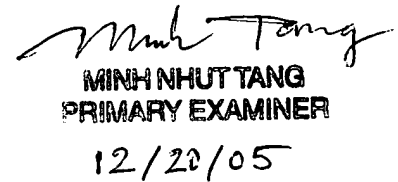 Minh Tang
MINH NHUT TANG
PRIMARY EXAMINER
12/20/05